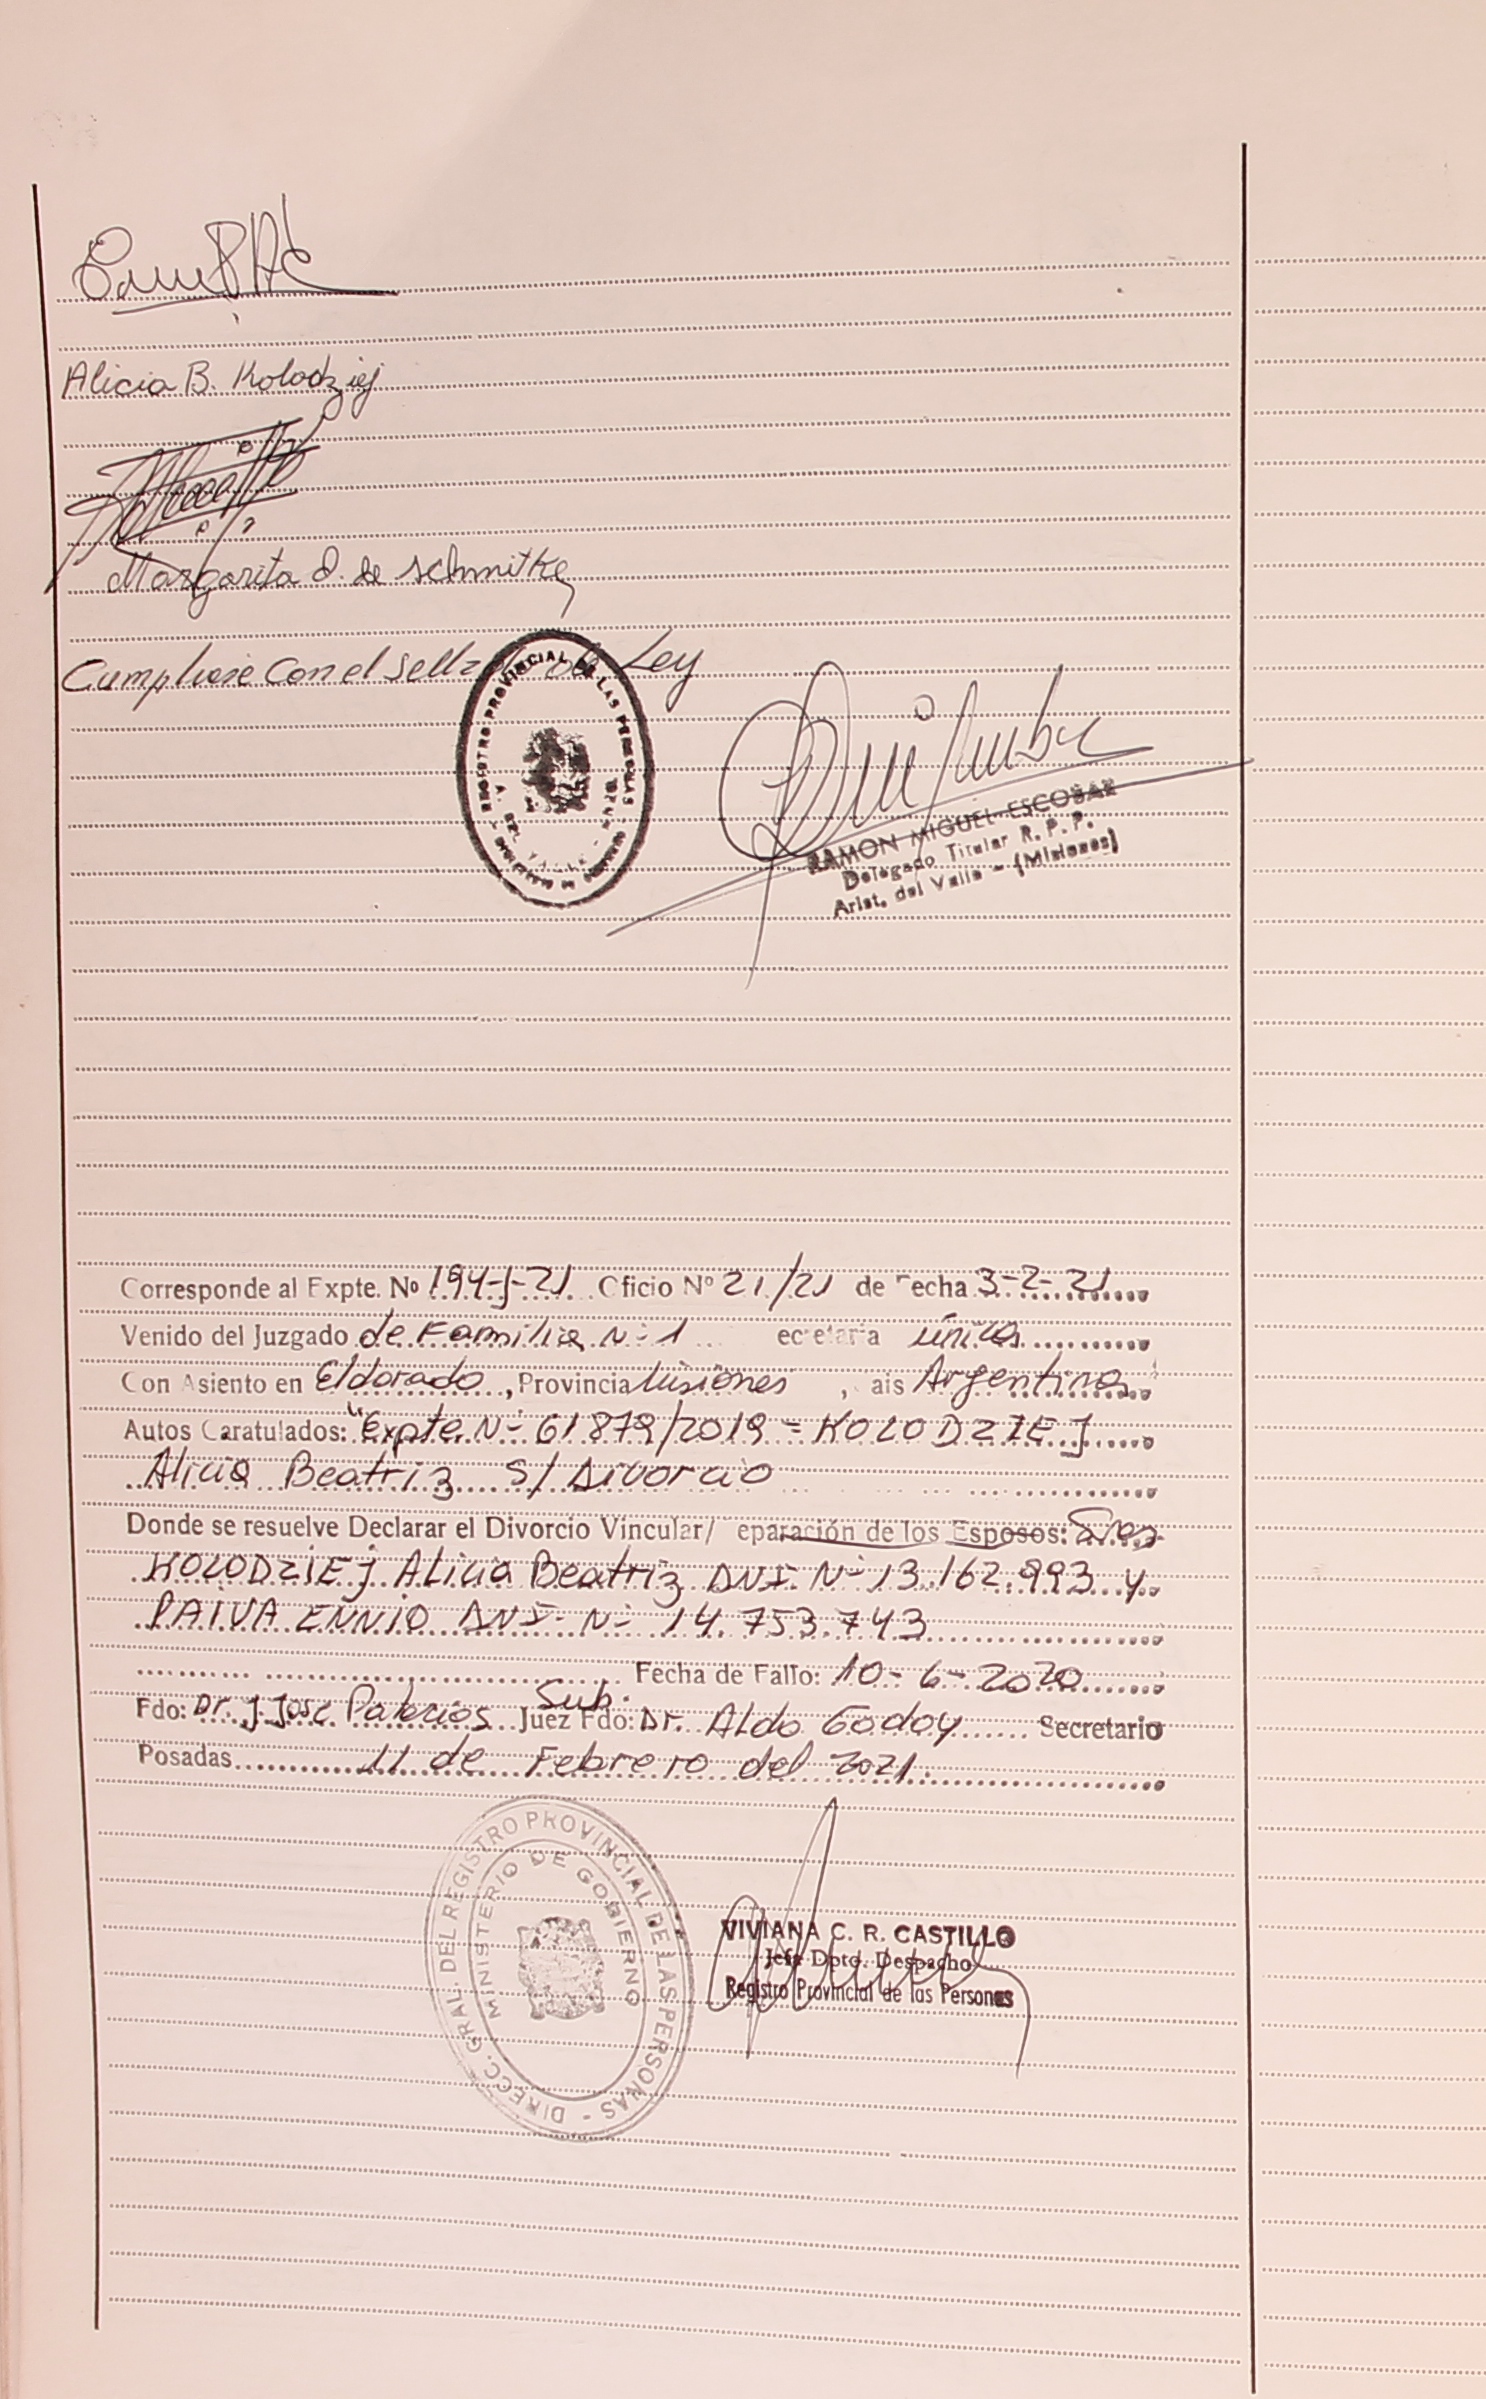 Alicia B. Kolodziej
Margarita O. de Schmitke
Cumpliose con el sellado de Ley
REGISTRO PROVINCIAL DE LAS PERSONAS
A. DEL VALLE
RAMON MIGUEL ESCOBAR
Delegado Titular R. P. P.
Arist. del Valle - (Misiones)
Corresponde al Expte. No 194-J-21 Oficio Nº 21/21 de Fecha 3-2-21
Venido del Juzgado de Familia Nº 1 ecretaria única
Con Asiento en Eldorado, Provincia Misiones, ais Argentina
Autos Caratulados: "Expte. Nº 61879/2019 = KOLODZIEJ
Alicia Beatriz S/ Divorcio
Donde se resuelve Declarar el Divorcio Vincular/ eparación de los Esposos: Sres
KOLODZIEJ Alicia Beatriz DNI. Nº 13.162.993 y
PAIVA ENNIO DNI- Nº 14.753.743
Fecha de Fallo: 10-6-2020
Fdo: Dr. J. José Palacios Sub. Juez Fdo: Dr. Aldo Godoy Secretario
Posadas 11 de Febrero del 2021.
DIRECC. GRAL. DEL REGISTRO PROVINCIAL DE LAS PERSONAS -
MINISTERIO DE GOBIERNO
VIVIANA C. R. CASTILLO
Jefe Dpto. Despacho
Registro Provincial de las Personas